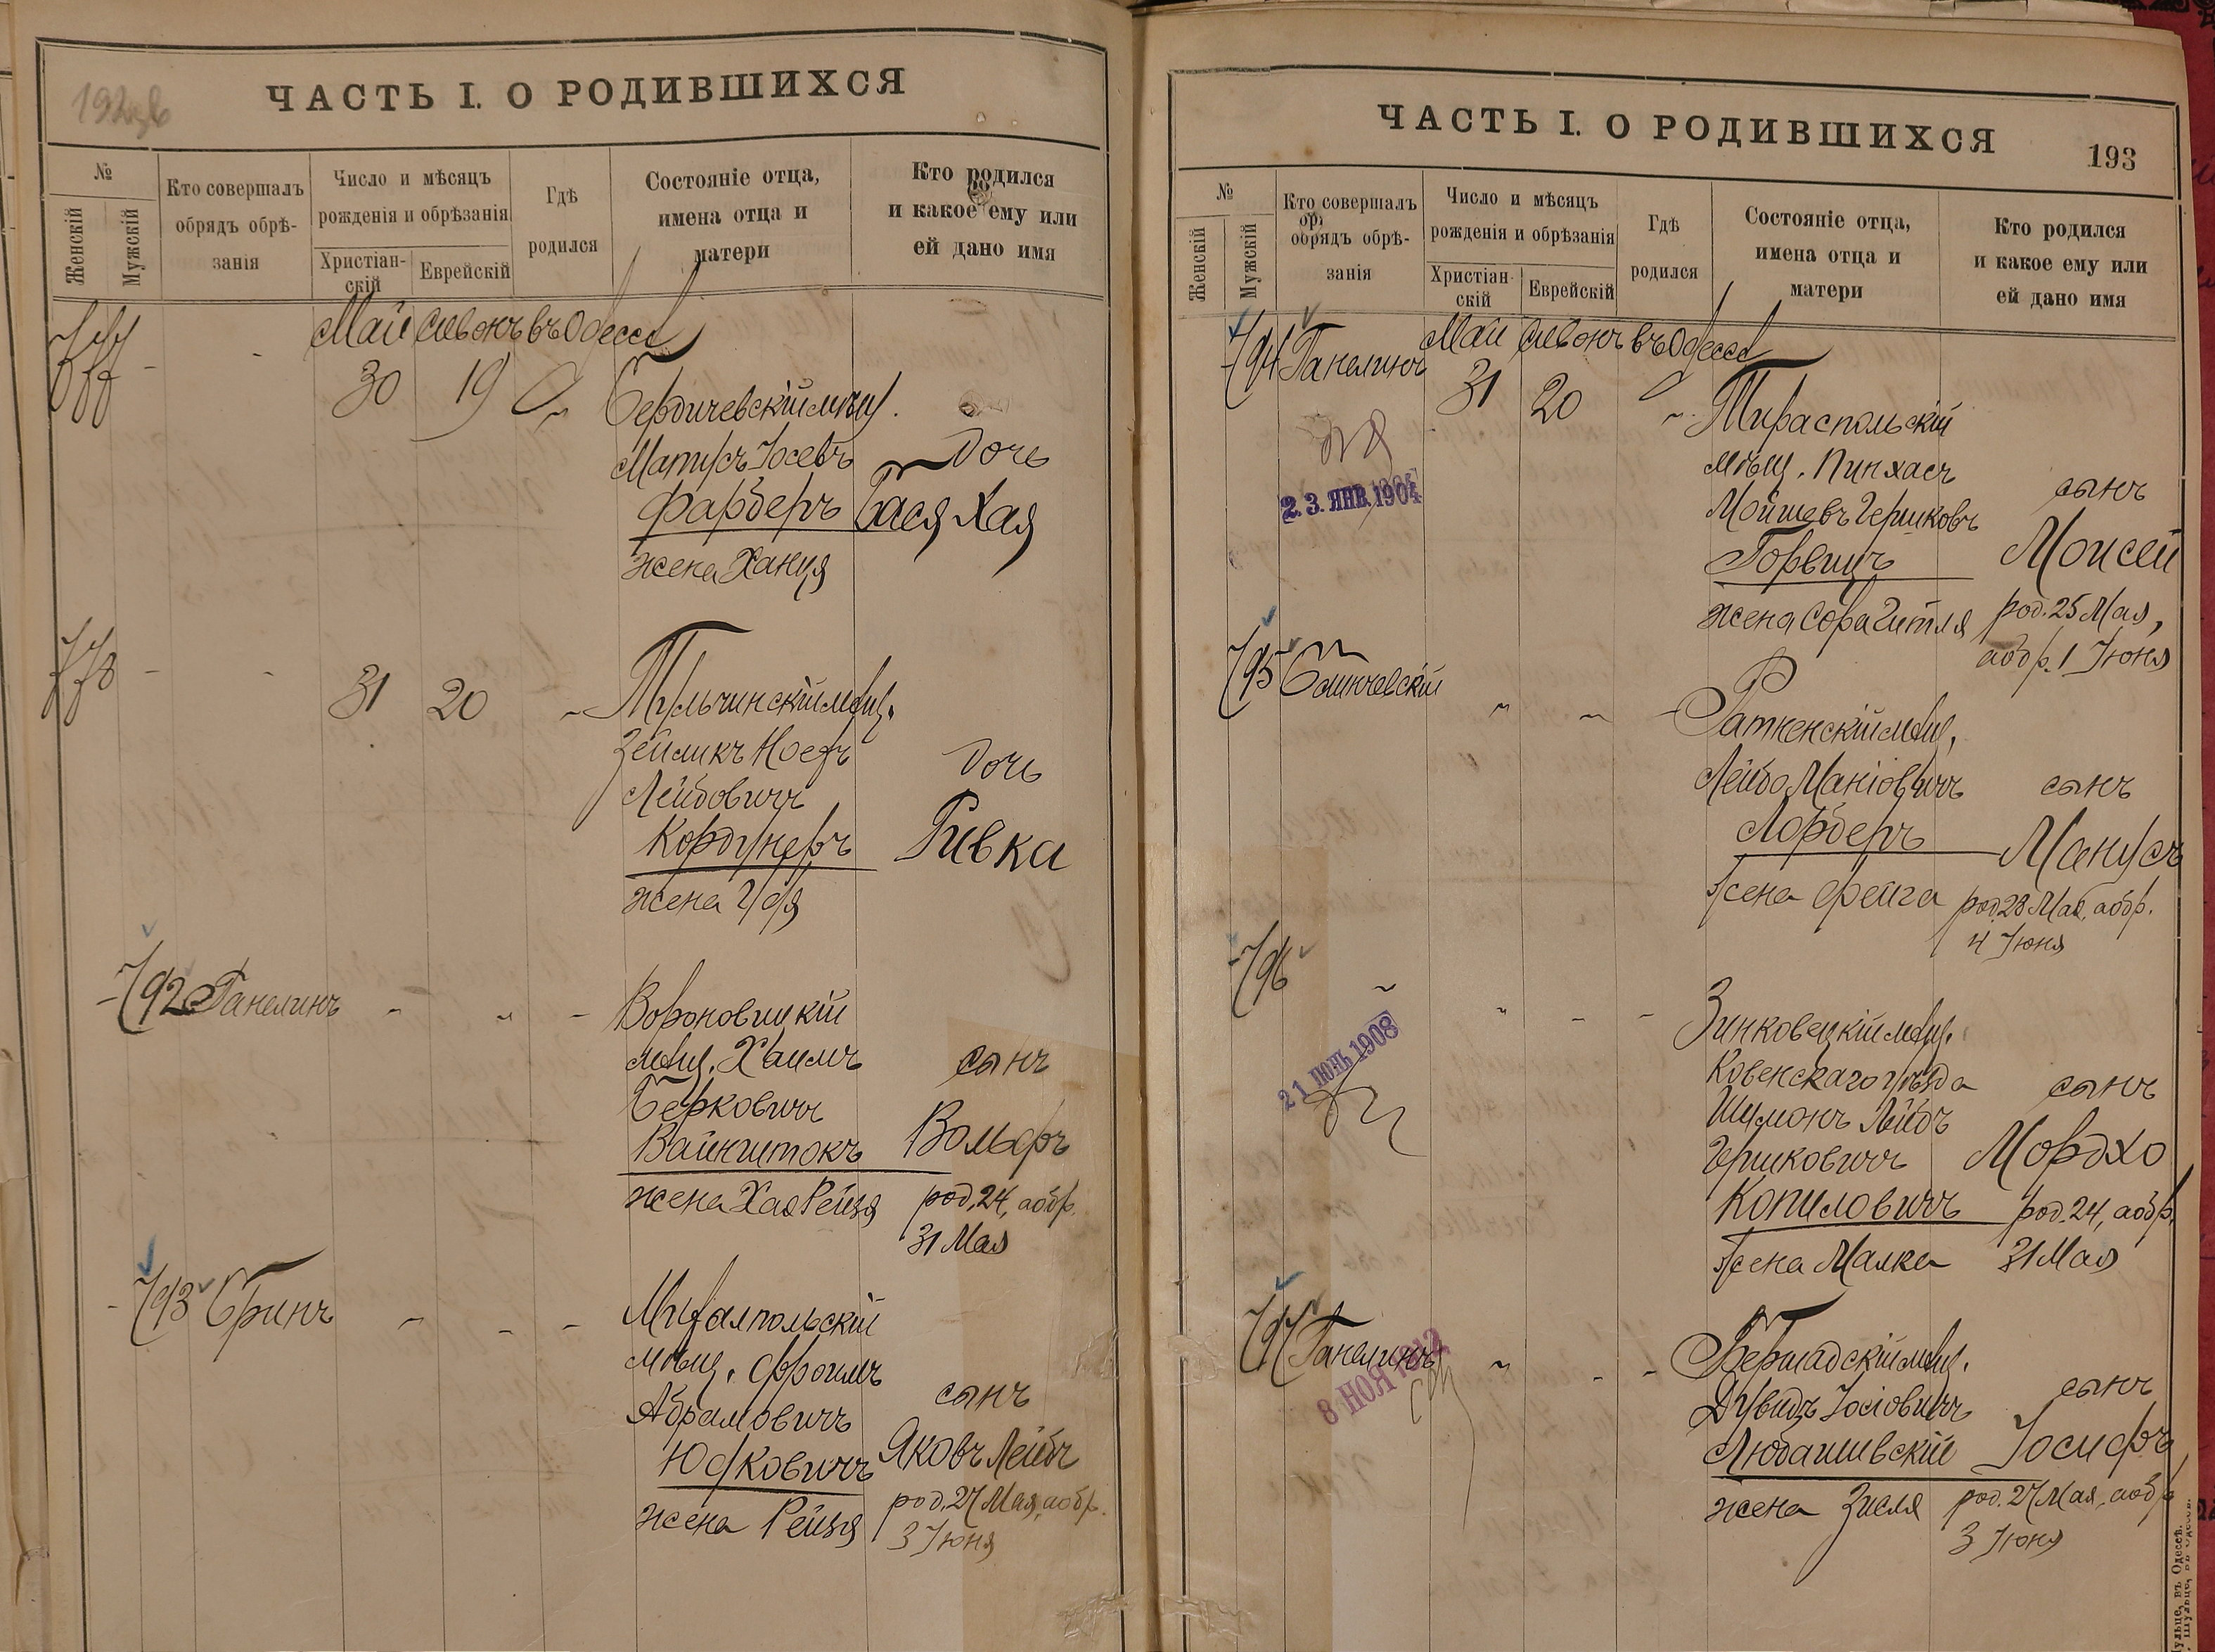 192об
ЧАСТЬ I. О РОДИВШИХСЯ
№
Женскій
Мужскій
Кто совершалъ
обрядъ обрѣ-
занія
Число и мѣсяцъ
рожденія и обрѣзанія
Христіан-
скій
Еврейскій
Гдѣ
родился
Состояніе отца,
имена отца и
матери
Кто родился
и какое ему или
ей дано имя
777 - - Май Сивонъ въ Одессѣ
30 19 Бердичевскій мѣщ.
Матусъ Іосевъ Дочь
Фарберъ Бася Хая
жена Ханця
778 - - 31 20 Тульчинскій мѣщ.
Зейликъ Носъ
Лейбовичъ Дочь
Кордунеръ Ривка
жена
792 Ганелинъ Вороновицкій
мѣщ. Хаимъ сынъ
Берковичъ
Вайнштокъ Вольфъ
жена Хая Рейзя род. 24, аобр.
31 Мая
793 Гринъ
мѣщ. Фроимъ
Абрамовичъ сынъ
Юсковичъ Яковъ Лейбъ
жена Рейзя род. 27 Мая, аобр.
3 Іюня
ЧАСТЬ I. О РОДИВШИХСЯ
193
№
Женскій
Мужскій
Кто совершалъ
обрядъ обрѣ-
занія
Число и мѣсяцъ
рожденія и обрѣзанія
Христіан-
скій
Еврейскій
Гдѣ
родился
Состояніе отца,
имена отца и
матери
Кто родился
и какое ему или
ей дано имя
794 Ганелинъ Май Сивонъ въ Одессѣ
31 20 Тираспольскій
мѣщ. Пинхасъ
Мойшевъ Гершковъ сынъ
Горвицъ Моисей
жена Сора Гитля род. 25 Мая,
аобр. 1 Іюня
23. ЯНВ. 1904
795 Ратненскій мѣщ.
Лейбо Маніовичъ сынъ
Лорберъ Манусъ
жена Фейга род. 28 Мая, аобр.
4 Іюня
796 Зинковецкій мѣщ.
Ковенскаго уѣзда
Шимонъ Лейбъ сынъ
Гершковичъ Мордхо
Копиловичъ род. 24, аобр.
жена Малка 31 Мая
21 ІЮНЬ 1908
797 Ганелинъ Бершадскій мѣщ.
Дувидъ Іосіовичъ сынъ
Любашевскій Іосифъ
жена Зисля род. 27 Мая, аобр.
3 Іюня
8 НОЯ 1912